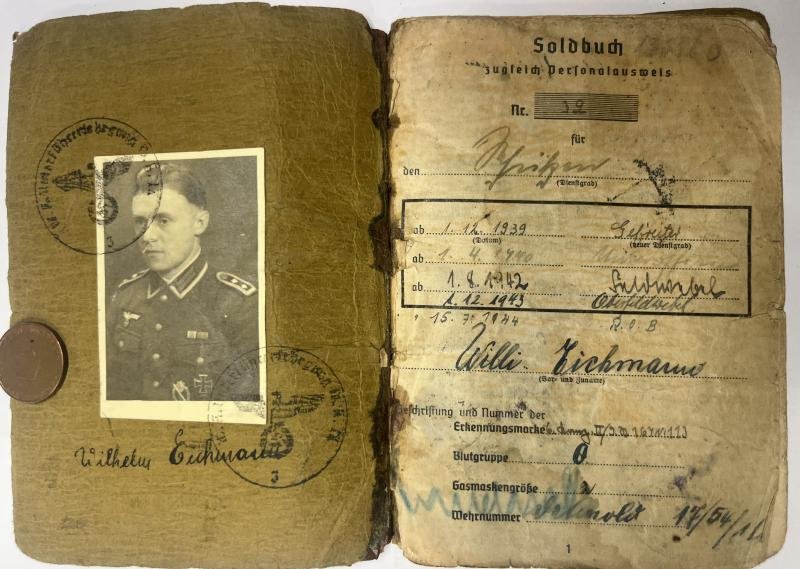 Wilhelm Eichmann
3
3
Soldbuch
zugleich Personalausweis
Nr. 32
für
den Schützen
(Dienstgrad)
ab 1. 12. 1939 Gefreiter
(Datum) (neuer Dienstgrad)
ab 1. 4. 1940
ab 1. 8. 1942 Feldwebel
1. 12. 1943 Oberfeldwebel
15. 7. 1944 R.O.B
Willi Eichmann
(Vor- und Zuname)
Beschriftung und Nummer der
Erkennungsmarke
Blutgruppe 0
Gasmaskengröße 2
Wehrnummer Detmold 17/54/
1